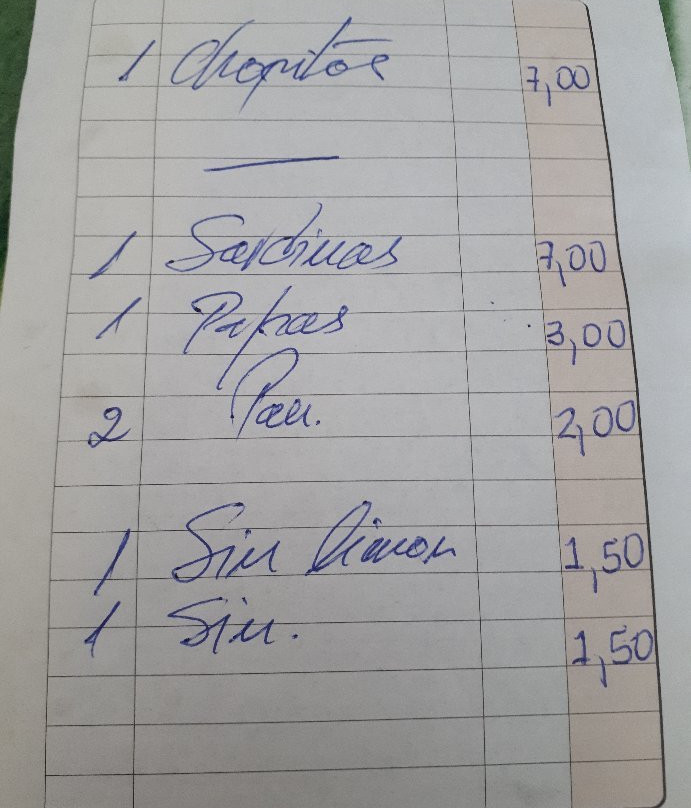 1 Chopitos 7,00
1 Sardinas 7,00
1 Papas 3,00
2 Pan. 2,00
1 Sin limon 1,50
1 Sin. 1,50